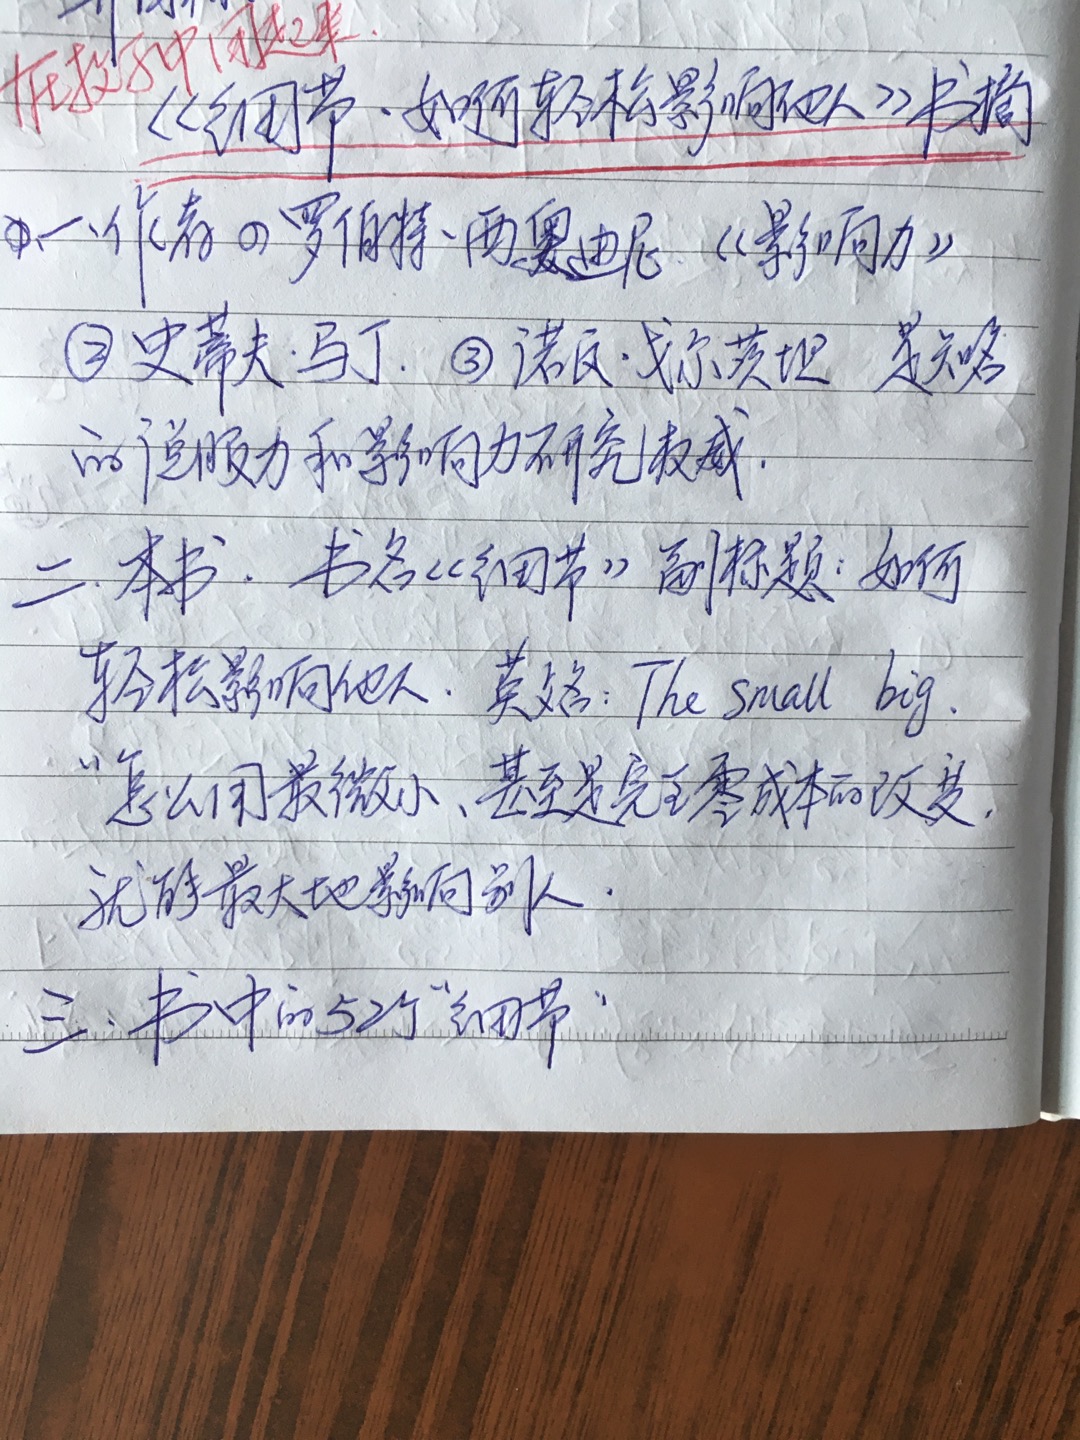 在投子中用起来.
《细节·如何轻松影响他人》书摘
一、作者 ① 罗伯特·西奥迪尼 《影响力》
② 史蒂夫·马丁. ③ 诺瓦·戈尔茨坦 是知名
的说服力和影响力研究权威.
二. 本书. 书名《细节》副标题: 如何
轻松影响他人. 英文名: The small big.
"怎么用最微小、甚至是完全零成本的改变,
就能最大地影响别人.
三. 书中的52个"细节"